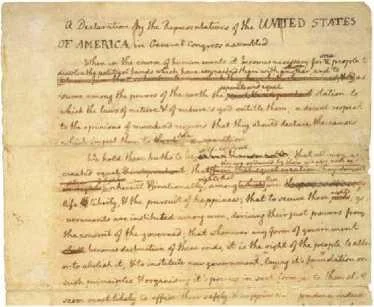 A Declaration by the Representatives of the UNITED STATES
OF AMERICA, in General Congress assembled
When in the course of human events it becomes necessary for one people to
dissolve the political bands which have connected them with another, and to
assume among the powers of the earth the separate and equal station to
which the laws of nature & of nature's god entitle them, a decent respect
to the opinions of mankind requires that they should declare the causes
which impel them to the separation
We hold these truths to be self-evident that all men are
created equal
life & liberty, & the pursuit of happiness; that to secure these ends, go
vernments are instituted among men, deriving their just powers from
the consent of the governed; that whenever any form of government
becomes destructive of these ends, it is the right of the people to alter
or to abolish it, & to institute new government, laying it's foundation on
such principles & organising it's powers in such form, as to them shall
seem most likely to effect their safety & happiness